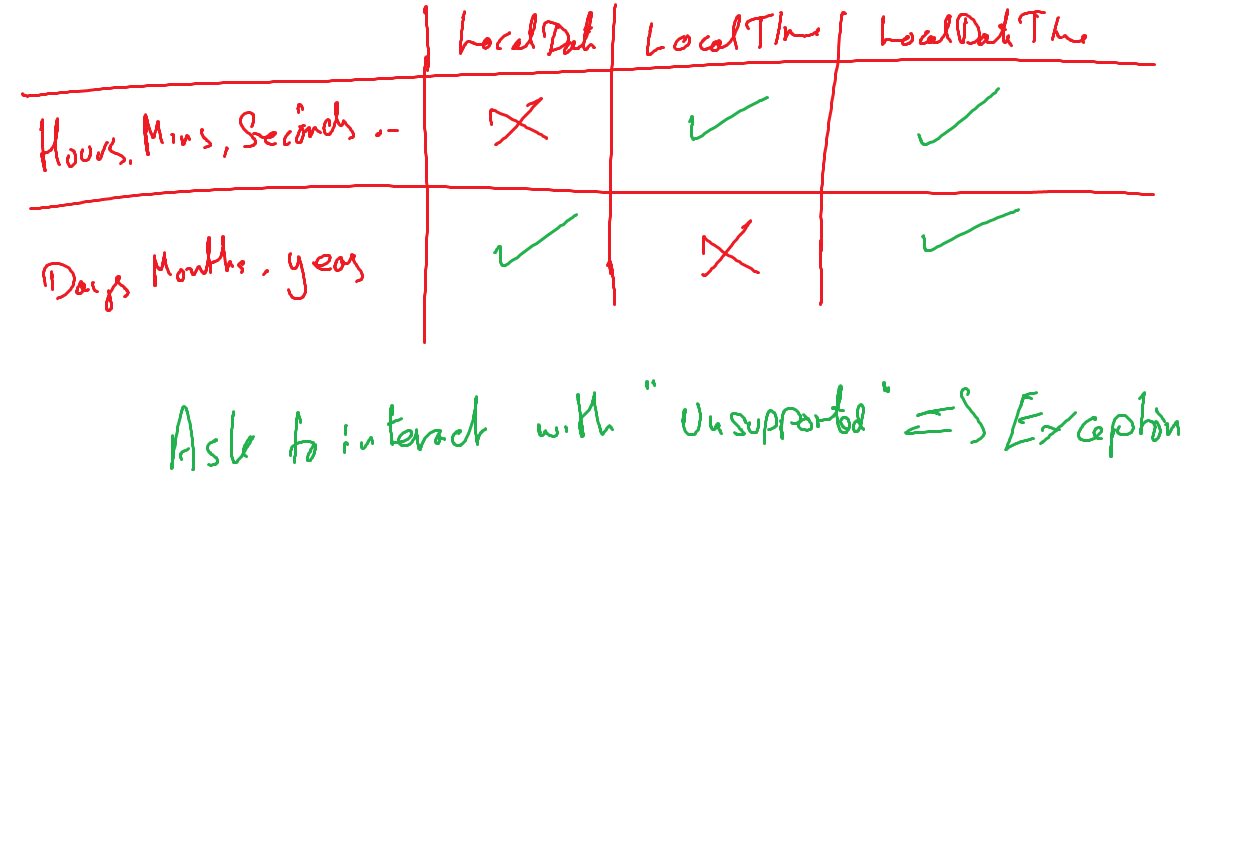 LocalDate LocalTime LocalDateTime
Hours, Mins, Seconds ..
Days Months, years
Ask to interact with "Unsupported" => Exception